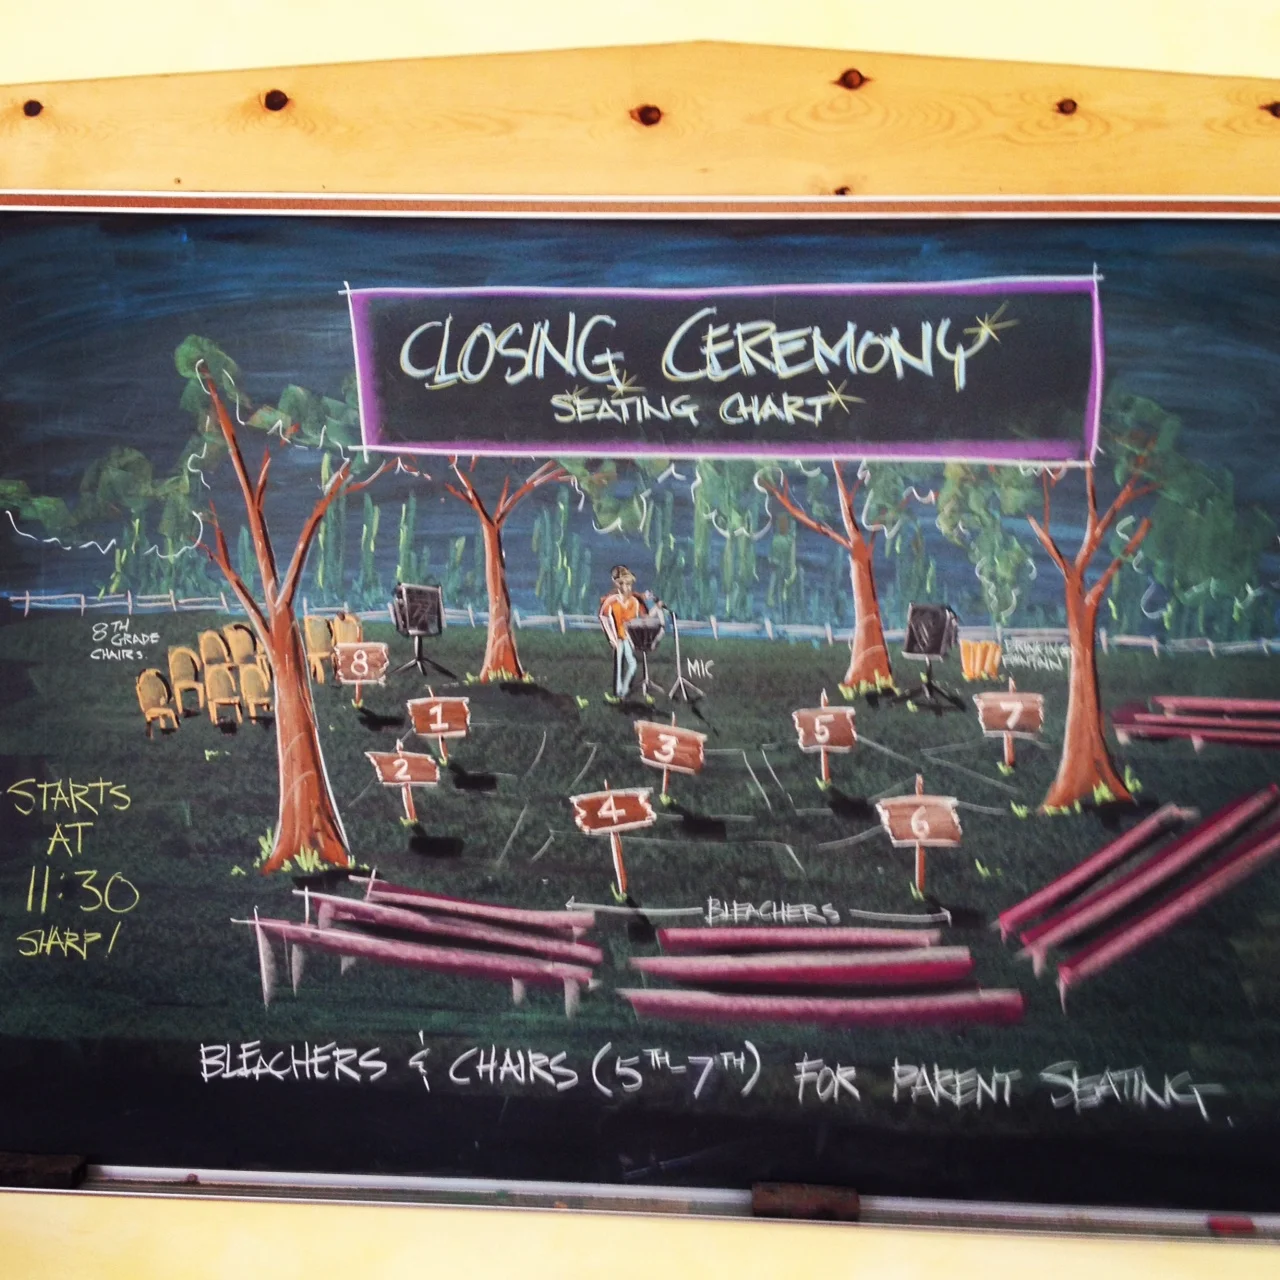 CLOSING CEREMONY
SEATING CHART
8TH
GRADE
CHAIRS.
8
MIC
DRINKING
FOUNTAIN
1
2
3
4
5
6
7
STARTS
AT
11:30
SHARP!
BLEACHERS
BLEACHERS & CHAIRS (5TH-7TH) FOR PARENT SEATING.